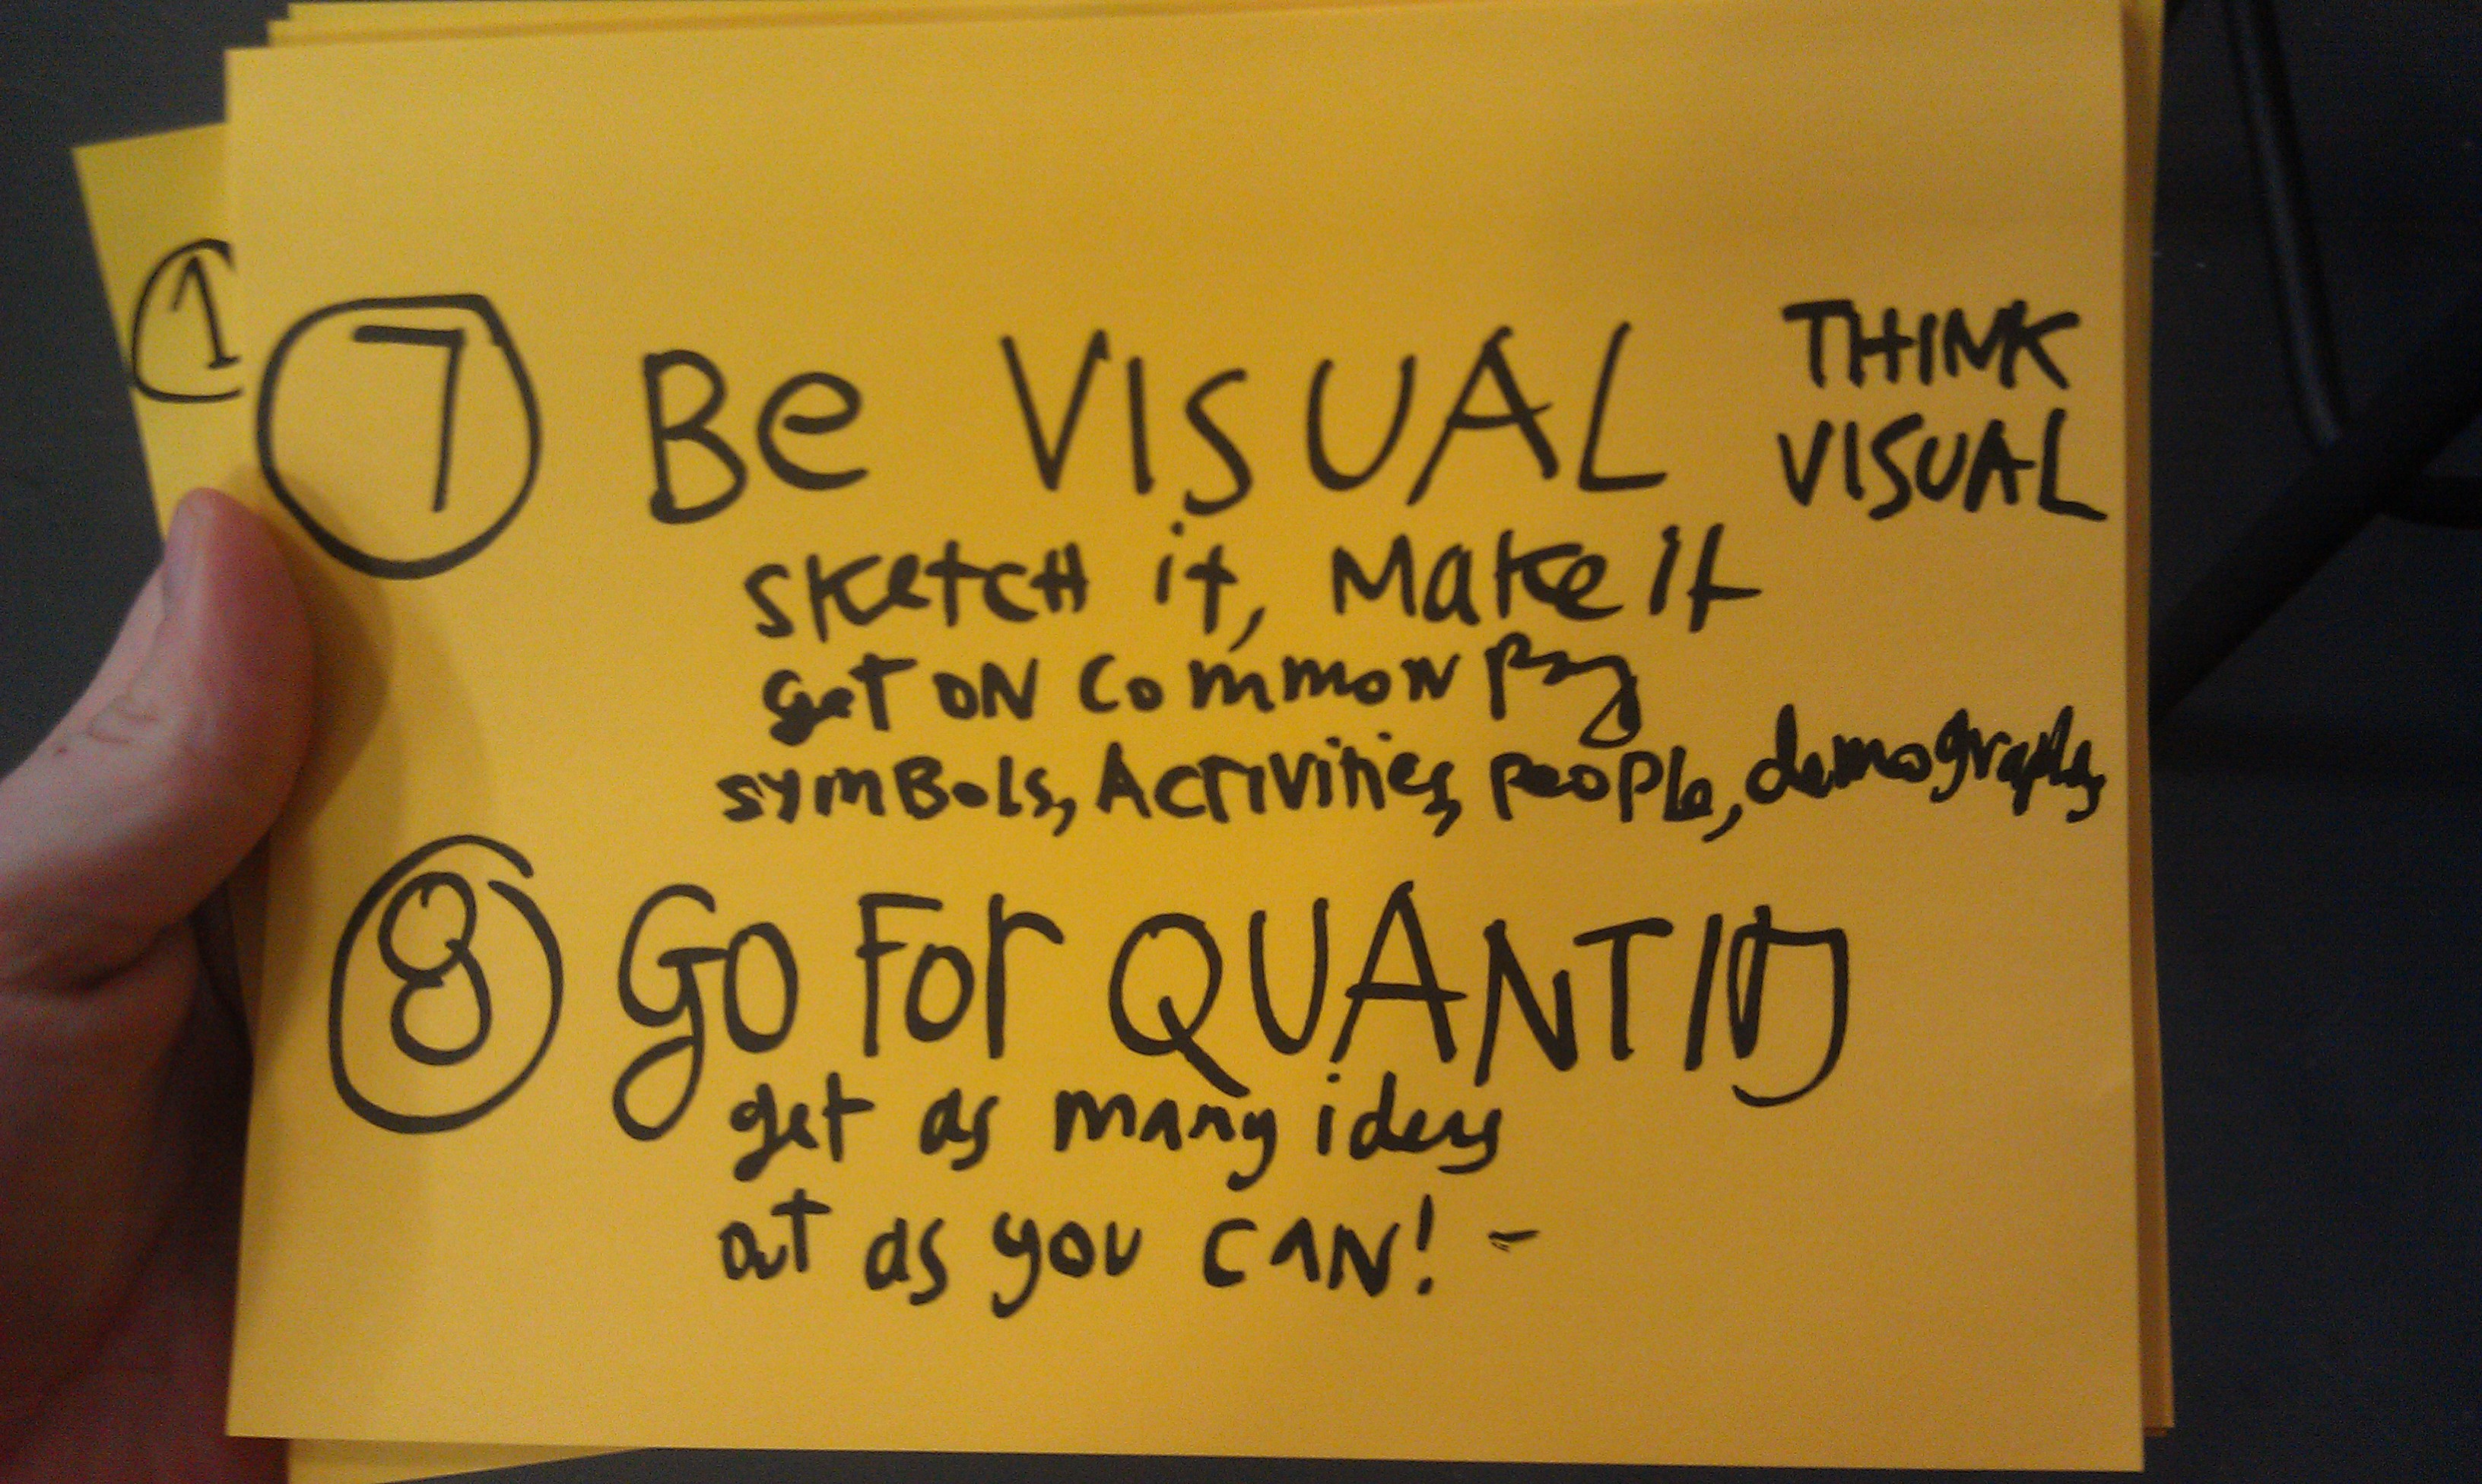 1
7 Be VISUAL
THINK
VISUAL
sketch it, Make it
get on common
symbols, Activities, people,
8 Go For QUANTITY
get as many ideas
out as you can! -